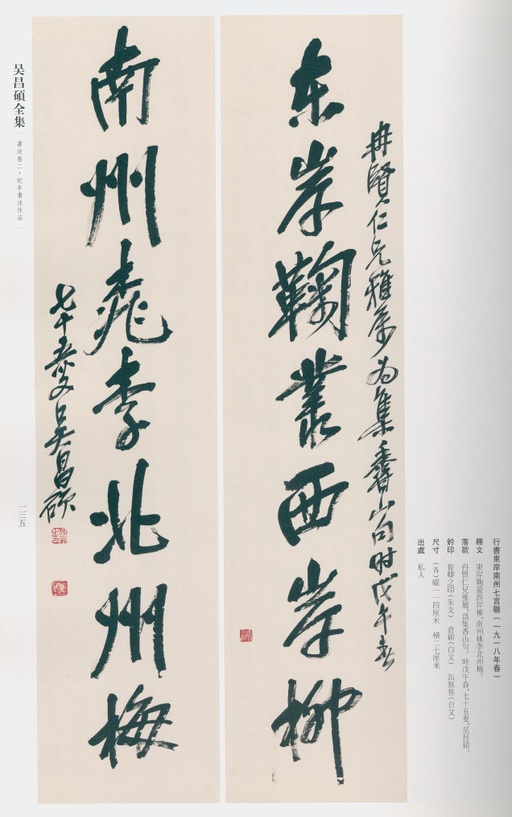 东岸鞠叢西岸柳
冉賢仁兄雅屬为集香山句时戊午春
南州桃李北州梅
七十五叟吴昌碩
吴昌碩全集
書法卷二·紀年書法作品
一三五
行書東岸南州七言聯（一九一八年春）
釋文　東岸鞠叢西岸柳，南州桃李北州梅。
落款　冉賢仁兄雅屬，爲集香山句。時戊午春，七十五叟吴昌碩。
鈐印　俊卿之印（朱文）　倉碩（白文）　缶無咎（白文）
尺寸　（各）縱一一四厘米　横二七厘米
出處　私人